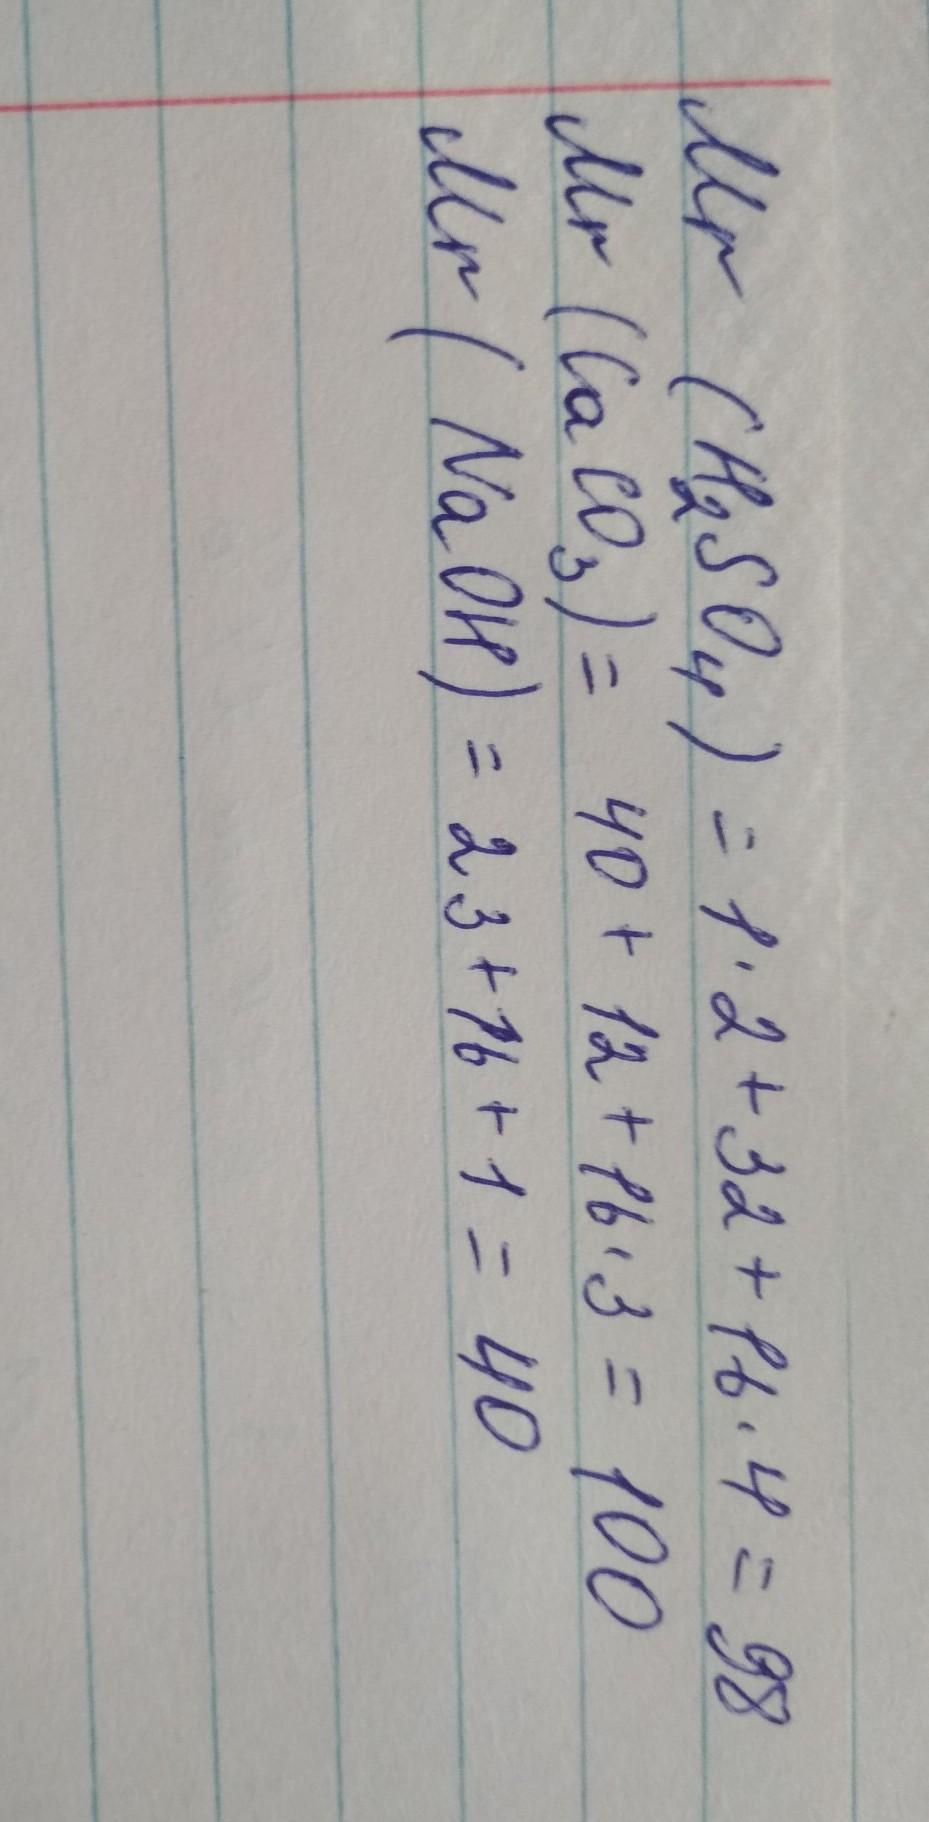 Mr (H₂SO₄) = 1·2+32+16·4=98
Mr (CaCO₃)= 40+12+16·3=100
Mr (NaOH)=23+16+1=40